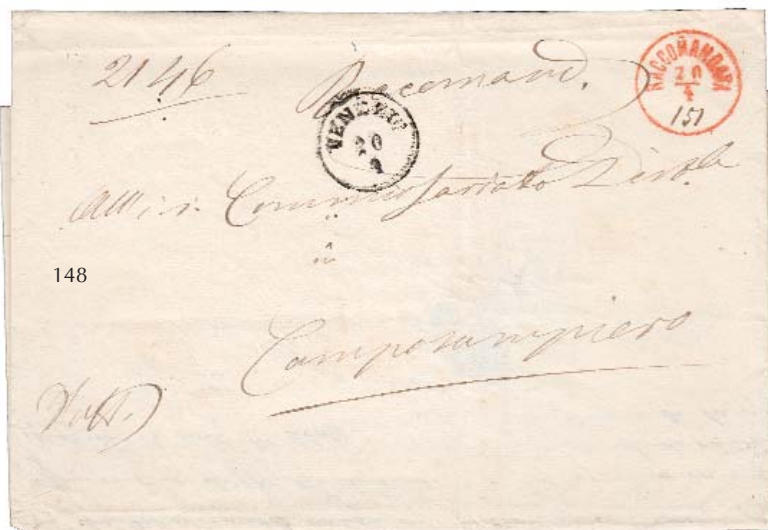 2146 Raccomand.
RACCOMANDATA
20
4
151
VENEZIA
20
4
All' i. r. Commissariato Distle
in
148
Camposampiero